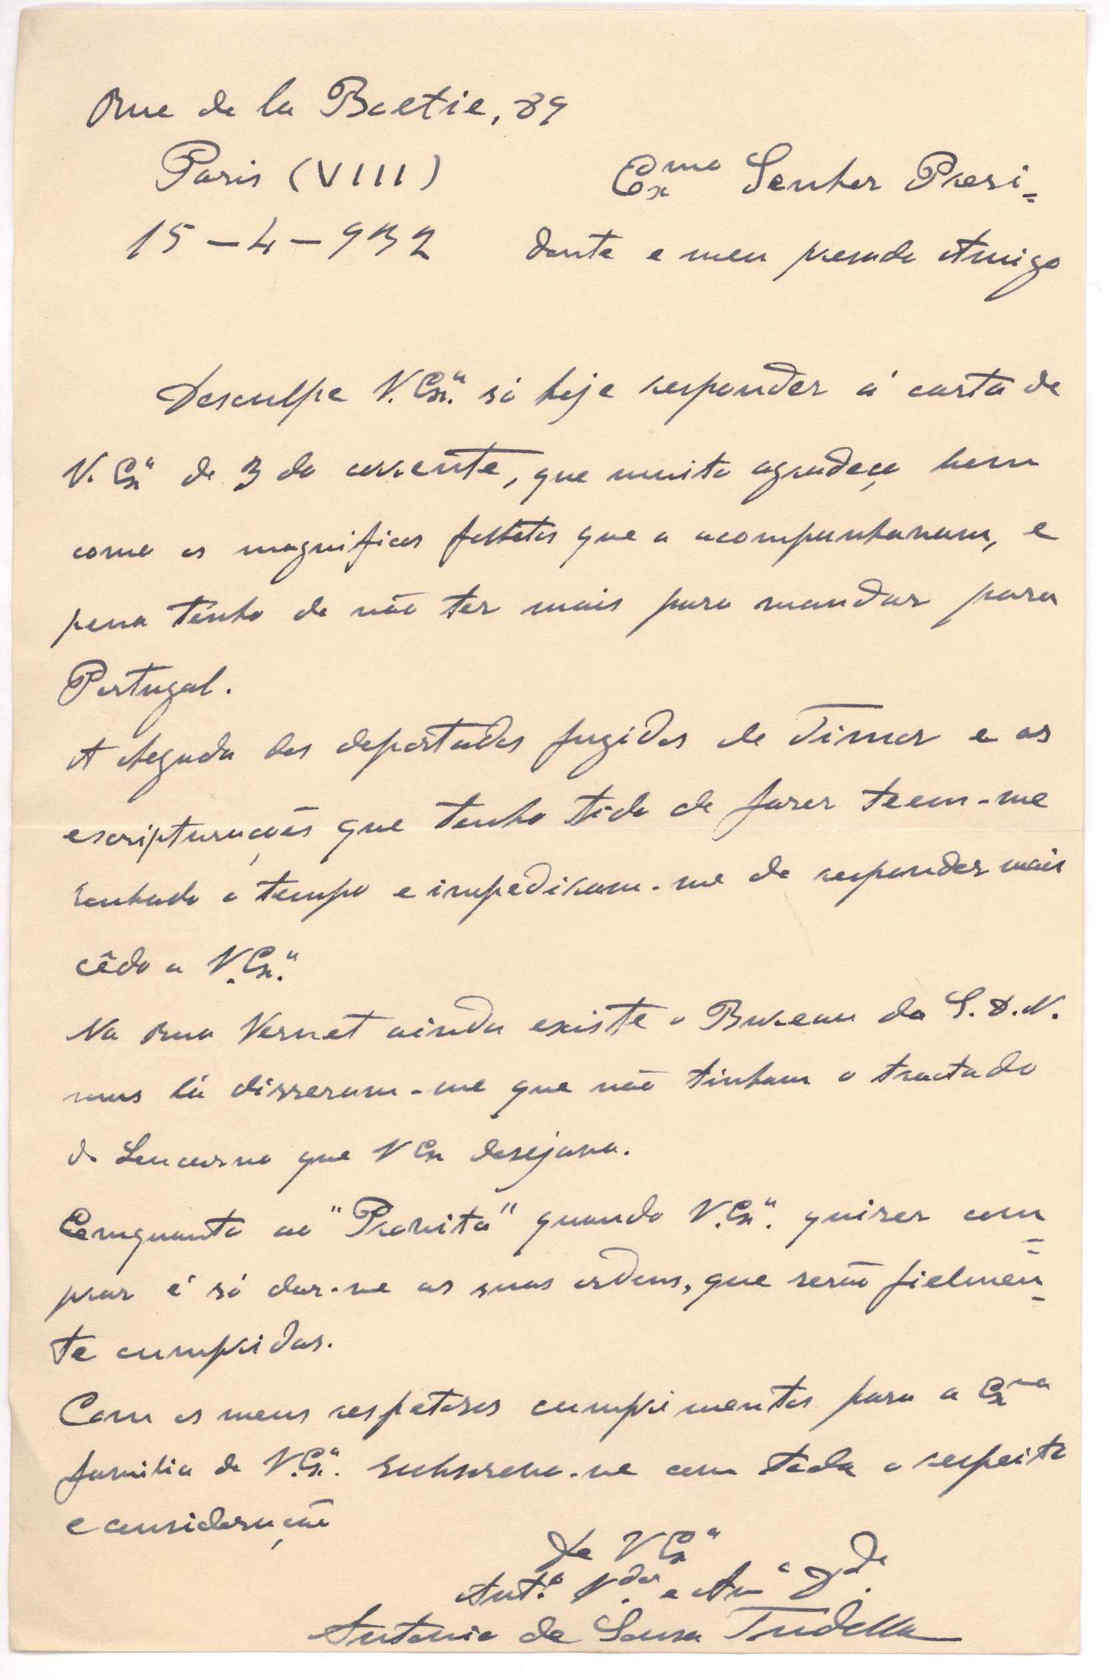 Rue de la Boetie, 89
Paris (VIII)
15-4-932
Exmo Senhor Presi=
dente e meu presado Amigo
Desculpe V.Exª. só hoje responder á carta de
V. Exª de 3 do corrente, que muito agradeço bem
como os magnificos folhetos que a acompanhavam, e
pena tenho de não ter mais para mandar para
Portugal.
A chegada dos deportados fugidos de Timor e as
escripturações que tenho tido de fazer teem-me
roubado o tempo e impediram-me de responder mais
cêdo a V.Exª.
Na Rua Vernet ainda existe o Bureau da S.D.N.
mas lá disseram-me que não tinham o tractado
de que V Ex desejava.
Emquanto ao "Provita" quando V.Exª. quizer com=
prar é só dar-me as suas ordens, que serão fielmen=
te cumpridas.
Com os meus respetosos cumprimentos para a Exma
familia de V.Exª. subscrevo-me com todo o respeito
e consideração
De V Exª
Antº. Vdor e Amº
Antonio de Sousa Tudella